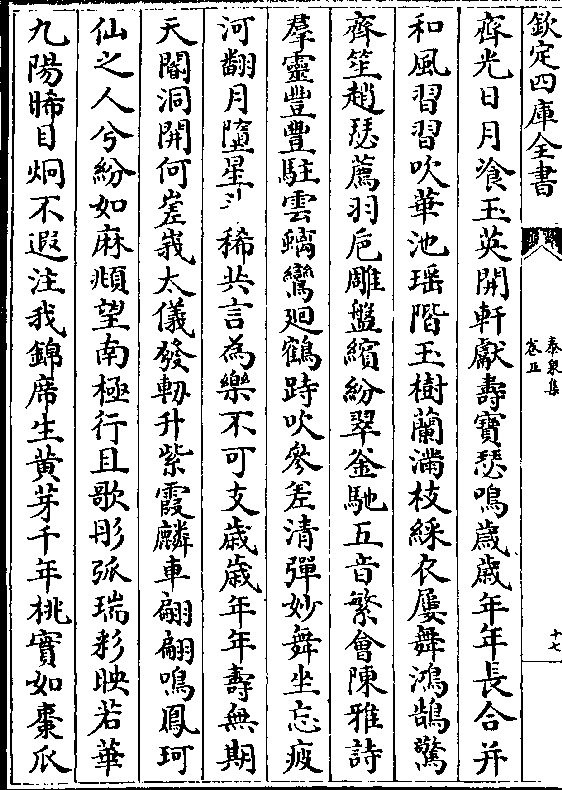 欽定四庫全書
泰泉集
卷五
十七
齊光日月飡玉英開軒獻壽寶瑟鳴歲歲年年長合并
和風習習吹華池瑶階玉樹蘭滿枝綵衣屢舞鴻鵠驚
齊笙趙瑟薦羽巵雕盤繽紛翠釜馳五音繁會陳雅詩
羣靈豐豐駐雲螭鸞廻鶴跱吹參差清彈妙舞坐忘疲
河翻月墮星 稀共言為樂不可支歲歲年年壽無期
天閽洞開何嵳峩太儀發軔升紫霞麟車翩翩鳴鳳珂
仙之人兮紛如麻頫望南極行且歌彤弧瑞彩映若華
九陽晞目炯不遐注我錦席生黄芽千年桃實如棗瓜